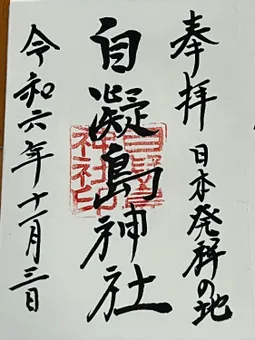 奉拝 日本発祥の地
自凝島神社
令和六年十一月三日